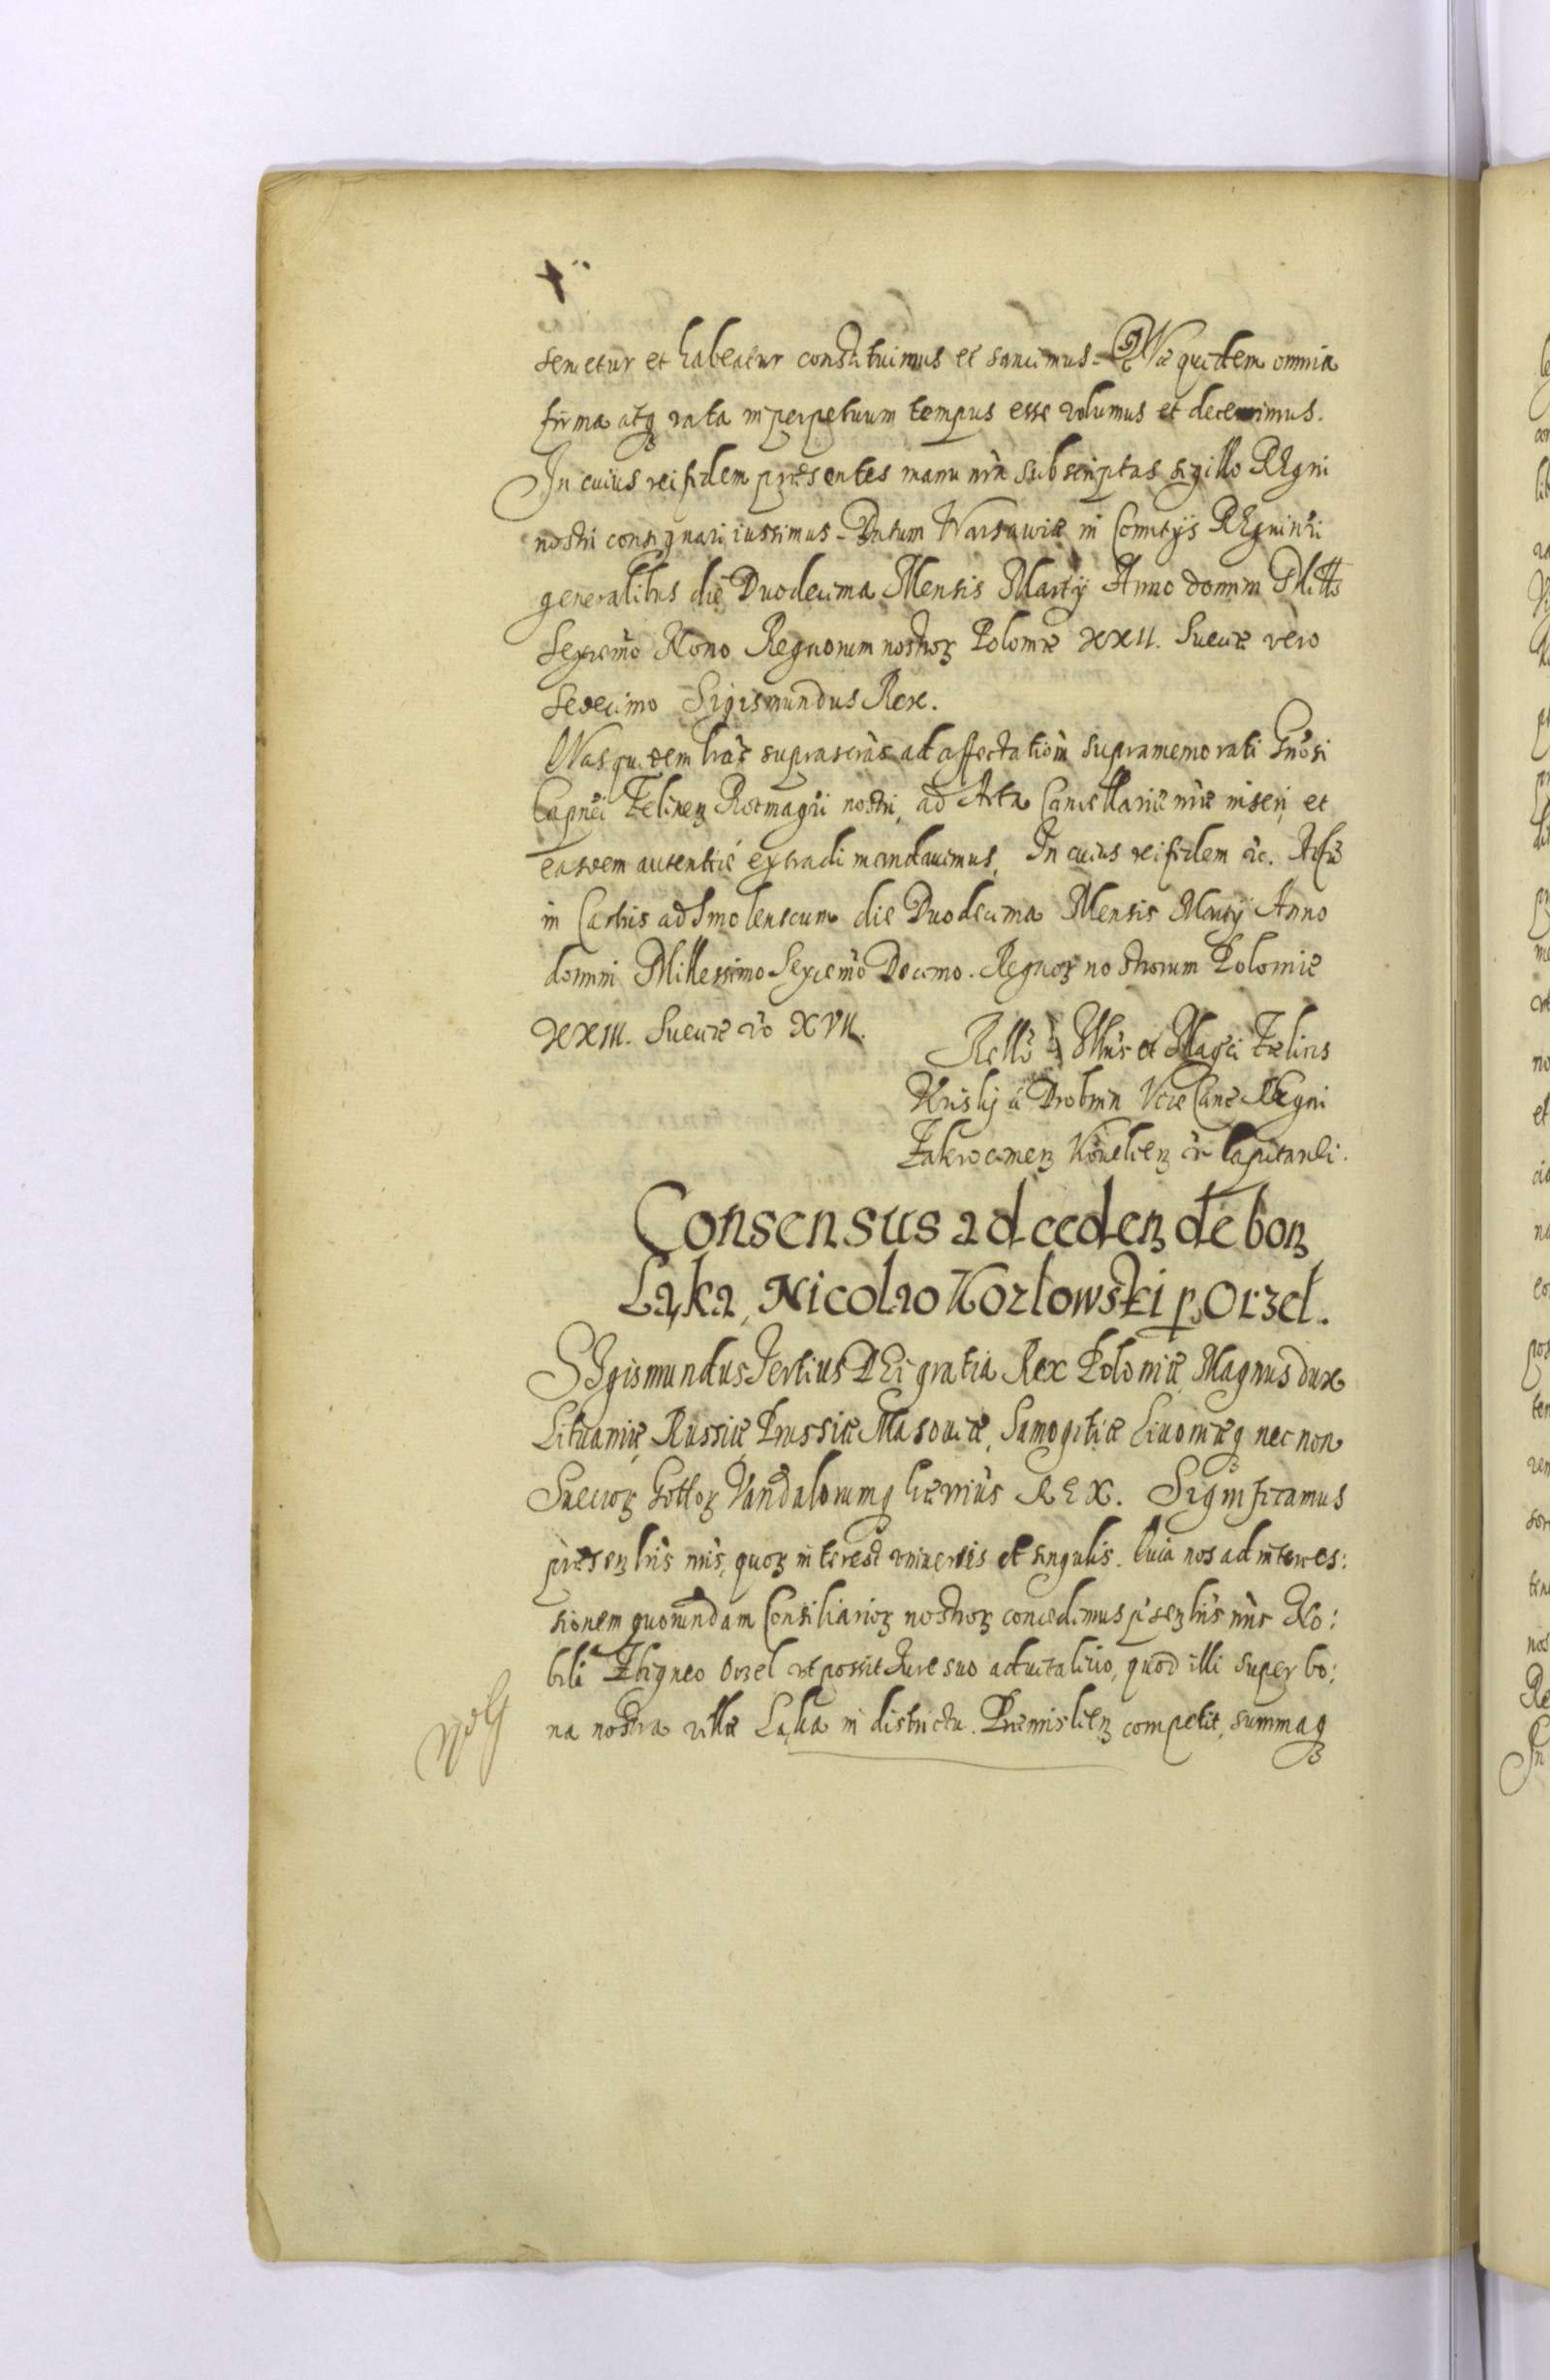 tenetur et habeatur constituimus et sancimus. Quæ quidem omnia
firma atq rata in perpetuum tempus esse volumus et decernimus.
In cuius rei fidem præsentes manu nra subscriptas sigillo REgni
nostri consignari iussimus. Datum Warsawiæ in Comitijs REgni nri
generalibus die Duodecima Mensis Martij Anno domini Millo
Sexcmo Nono Regnorum nostroꝝ Poloniæ XXII. Sueciæ vero
Sedecimo Sigismundus Rex.
Quas quidem lras suprascras ad affectationem supramemorati Gnosi
Capnei Felinen Rotmagri nostri, ad Acta Cancellariæ nræ inseri, et
easdem autenticé extradi mandauimus. In cuius rei fidem &c. Actu
in Castris ad Smolenscum die Duodecima Mensis Martij Anno
domini Millesimo Sexcmo Decimo. Regnoꝝ nostrorum Poloniæ
XXIII. Sueciæ vo XVII.
Rello Illris et Magci Felicis
Kriskj á Drobnin Vice Canc REgni
Zakrocimen Capitanei.
Consensus ad ceden de bon
Łąka, Nicolao Kozłowski p Orzeł.
SIgismundus Tertius DEi gratia Rex Poloniæ, Magnus dux
Lituaniæ, Russiæ, Prussiæ Masouiæ, Samogitiæ Liuoniæq necnon
Suecioꝝ Gottoꝝ Vandalorumq hærrius REX. Significamus
præsen lris nris, quoꝝ interest vniuersis et singulis. Quia nos ad interces:
sionem quorundam Consiliarioꝝ nostroꝝ concedimus psen lris nris No:
bili Zbigneo Orzel vt possit Iure suo aduitalitio, quod illi super bo:
na nostra villæ Łąka in districtu Præmislien competit, summaq